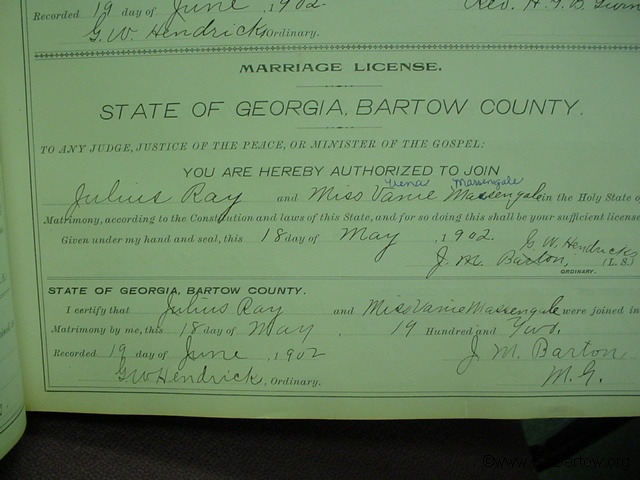 Recorded 19 day of June , 1902 Rev. H. F. B.
G. W. Hendricks Ordinary.
MARRIAGE LICENSE.
STATE OF GEORGIA, BARTOW COUNTY.
TO ANY JUDGE, JUSTICE OF THE PEACE, OR MINISTER OF THE GOSPEL:
YOU ARE HEREBY AUTHORIZED TO JOIN
Massengale
Julius Ray and Miss Vanie Massengale in the Holy State o
Matrimony, according to the Constitution and laws of this State, and for so doing this shall be your sufficient license
Given under my hand and seal, this 18 day of May , 1902. G. W. Hendricks
J. M. Barton, (L. S.)
ORDINARY.
STATE OF GEORGIA, BARTOW COUNTY.
I certify that Julius Ray and Miss Vanie Massengale were joined in
Matrimony by me, this 18 day of May , 19 Hundred and Two.
Recorded 19 day of June , 1902 J. M. Barton
G W Hendrick, Ordinary. M. G.